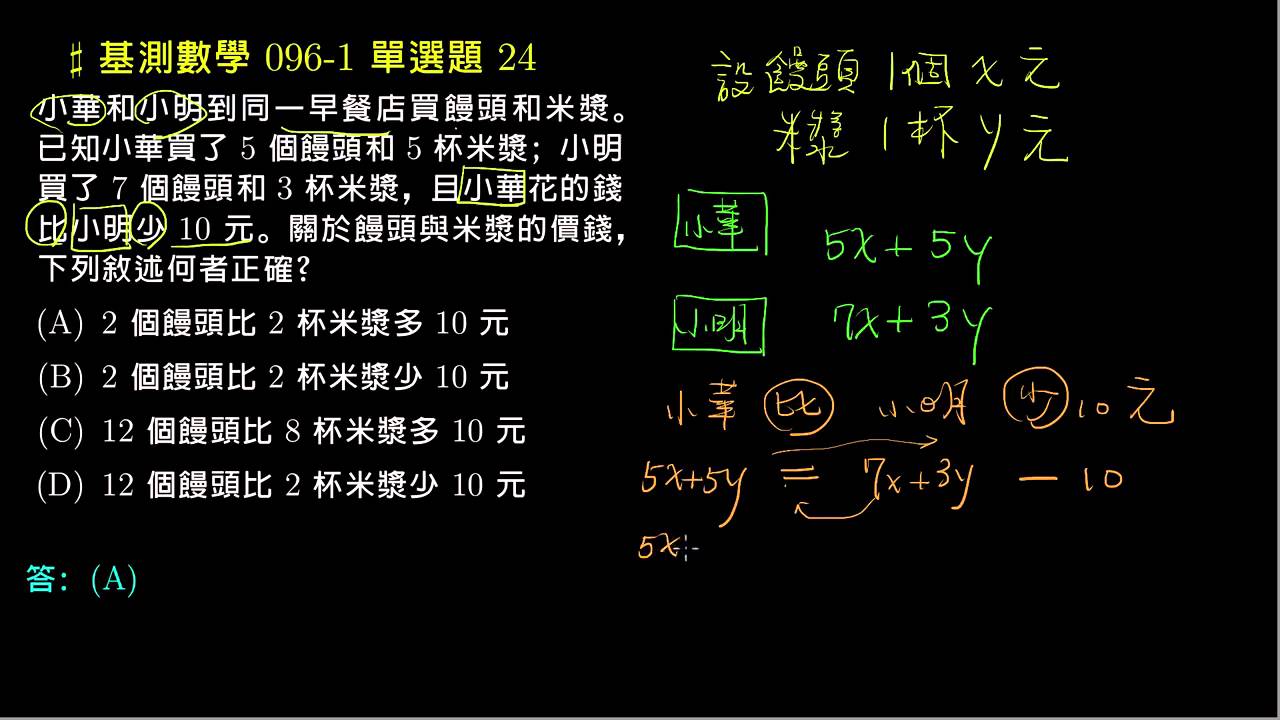 ♯ 基測數學 096-1 單選題 24
小華和小明到同一早餐店買饅頭和米漿。
已知小華買了 5 個饅頭和 5 杯米漿；小明
買了 7 個饅頭和 3 杯米漿，且小華花的錢
比小明少 10 元。關於饅頭與米漿的價錢，
下列敘述何者正確？
(A) 2 個饅頭比 2 杯米漿多 10 元
(B) 2 個饅頭比 2 杯米漿少 10 元
(C) 12 個饅頭比 8 杯米漿多 10 元
(D) 12 個饅頭比 2 杯米漿少 10 元
答：(A)
設饅頭 1個 x 元
米漿 1杯 y 元
小華 5x + 5y
小明 7x + 3y
小華 比 小明 少 10 元
5x+5y = 7x+3y − 10
5x